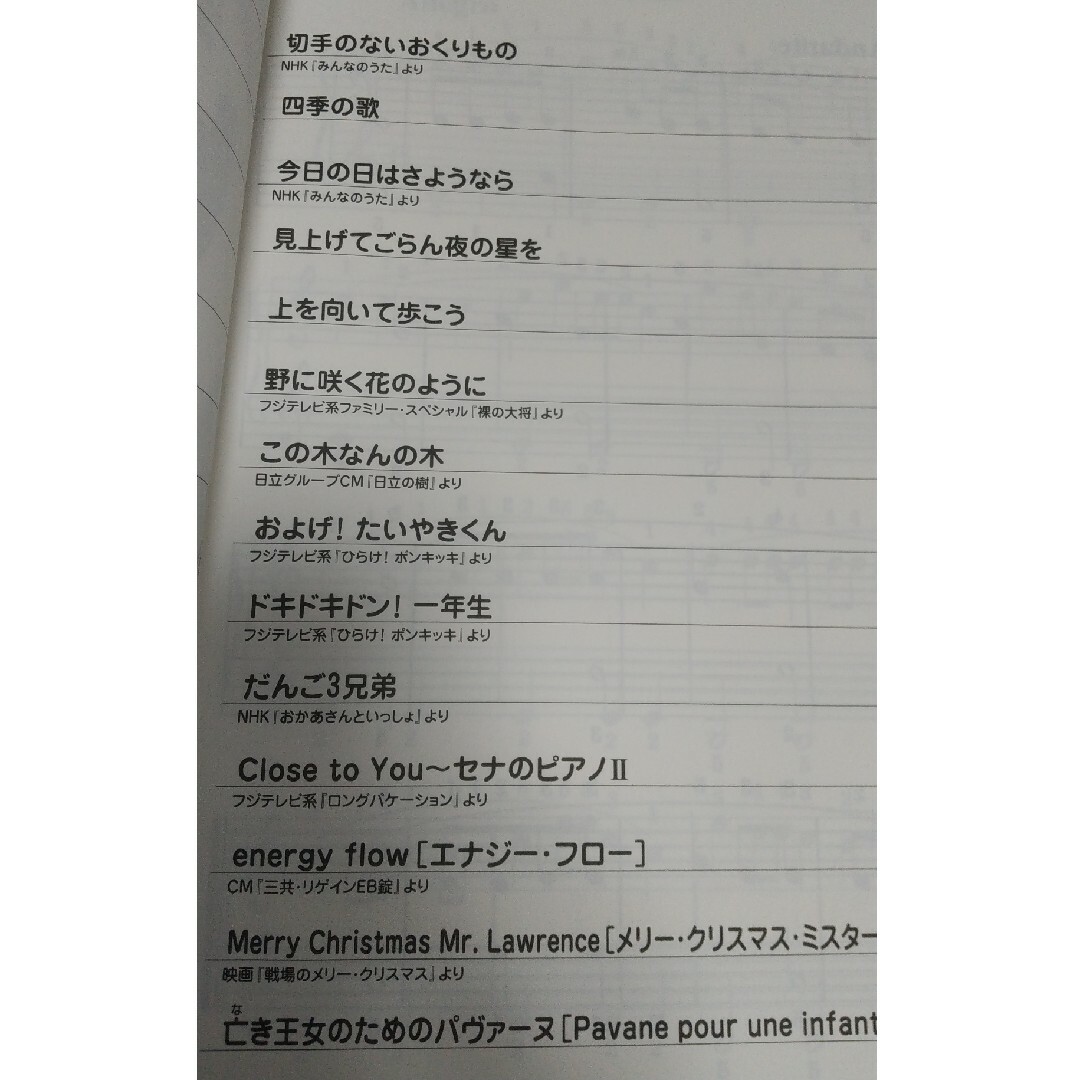 切手のないおくりもの
NHK『みんなのうた』より
四季の歌
今日の日はさようなら
NHK『みんなのうた』より
見上げてごらん夜の星を
上を向いて歩こう
野に咲く花のように
フジテレビ系ファミリー・スペシャル『裸の大将』より
この木なんの木
日立グループCM『日立の樹』より
およげ! たいやきくん
フジテレビ系『ひらけ! ポンキッキ』より
ドキドキドン! 一年生
フジテレビ系『ひらけ! ポンキッキ』より
だんご3兄弟
NHK『おかあさんといっしょ』より
Close to You〜セナのピアノⅡ
フジテレビ系『ロングバケーション』より
energy flow[エナジー・フロー]
CM『三共・リゲインEB錠』より
Merry Christmas Mr. Lawrence[メリー・クリスマス・ミスター
映画『戦場のメリー・クリスマス』より
な
亡き王女のためのパヴァーヌ[Pavane pour une infant